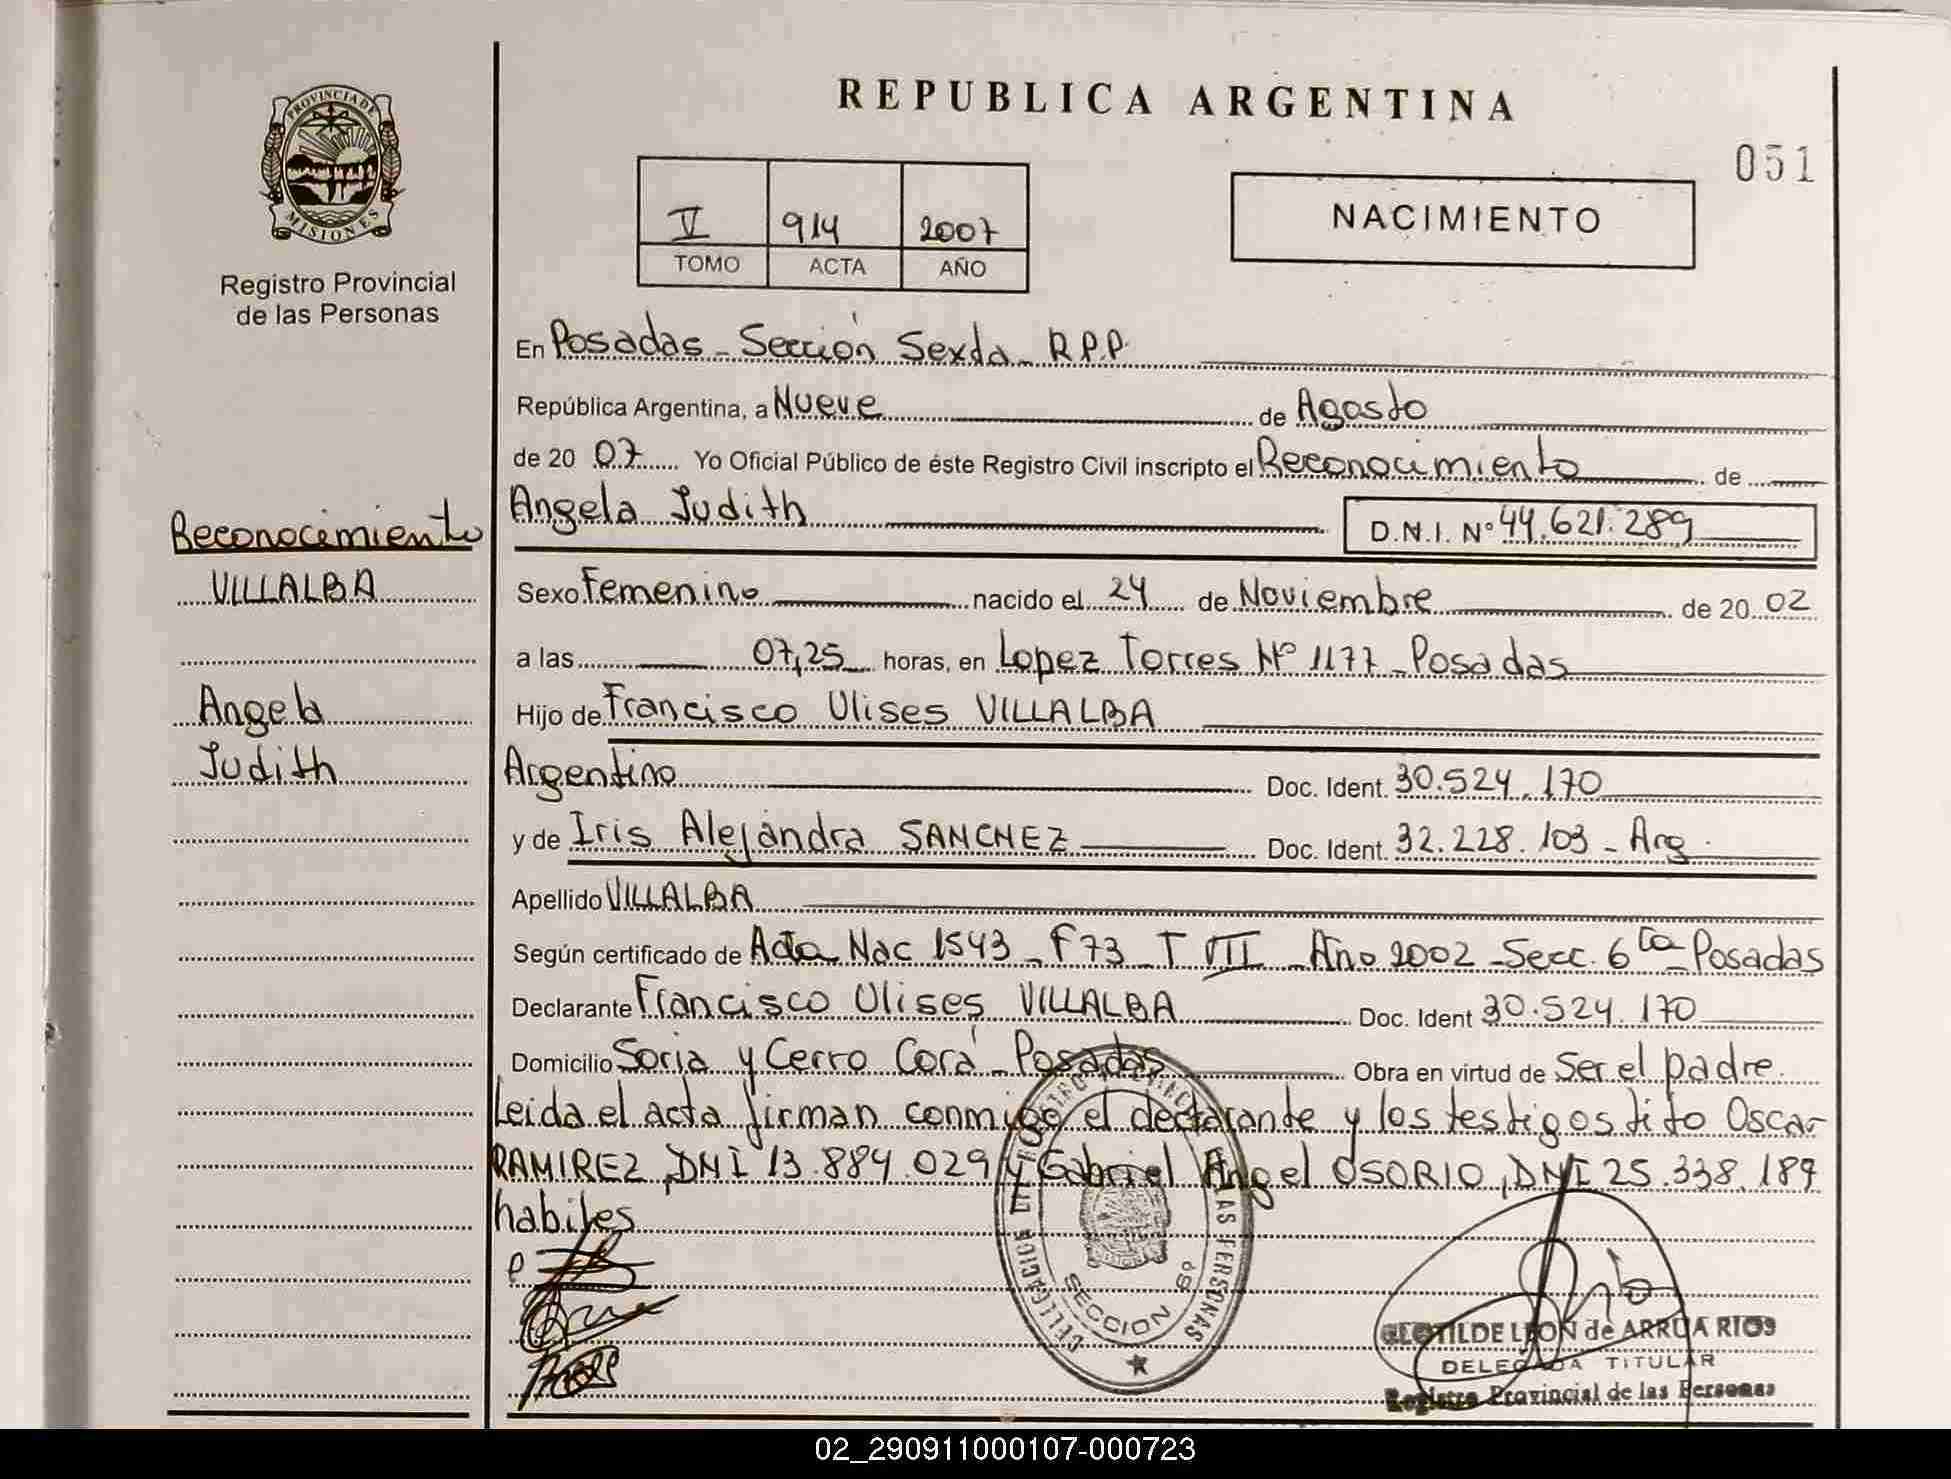 REPUBLICA ARGENTINA
051
PROVINCIA DE
MISIONES
Registro Provincial
de las Personas
V 914 2007
TOMO ACTA AÑO
NACIMIENTO
En Posadas - Sección Sexta - R.P.P.
República Argentina, a Nueve de Agosto
de 20 07 Yo Oficial Público de éste Registro Civil inscripto el Reconocimiento de
Angela Judith D.N.I. Nº 44.621.289
Reconocimiento
VILLALBA
Angela
Judith
Sexo Femenino nacido el 24 de Noviembre de 20 02
a las 07,25 horas, en Lopez Torres Nº 1177 - Posadas
Hijo de Francisco Ulises VILLALBA
Argentino Doc. Ident. 30.524.170
y de Iris Alejandra SANCHEZ Doc. Ident. 32.228.103 - Arg.
Apellido VILLALBA
Según certificado de Acta Nac 1543 - F 73 - T VII - Año 2002 - Secc. 6ta - Posadas
Declarante Francisco Ulises VILLALBA Doc. Ident 30.524.170
Domicilio Soria y Cerro Corá - Posadas Obra en virtud de Ser el padre.
Leida el acta firman conmigo el declarante y los testigos Tito Oscar
RAMIREZ, DNI 13.884.029 y Gabriel Angel OSORIO, DNI 25.338.187
habiles
SECCION 6º
CLOTILDE LEON de ARRUA RIOS
DELEGADA TITULAR
Registro Provincial de las Personas
02_290911000107-000723